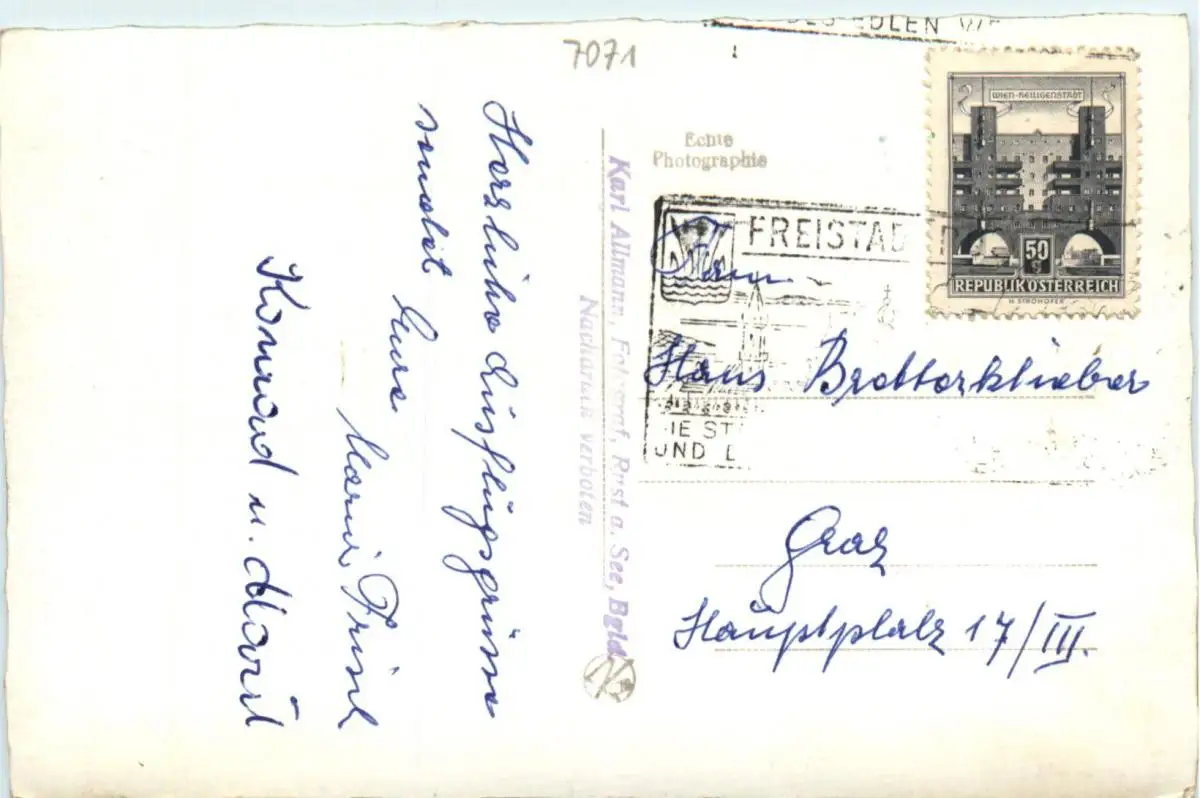 7071
Herzliche Ausflugsgrüsse
sendet Eure
Konrad u.
Echte
Photographie
Karl Allmann, Fotograf, Rust a. See, Bgld
Nachdruck verboten
EDLEN
WIEN-HEILIGENSTADT
50 g
REPUBLIK ÖSTERREICH
H. STROHOFER
FREISTAD
IE ST
UND
Fam.
Hans Bretterklieber
Graz
Hauptplatz 17/III.